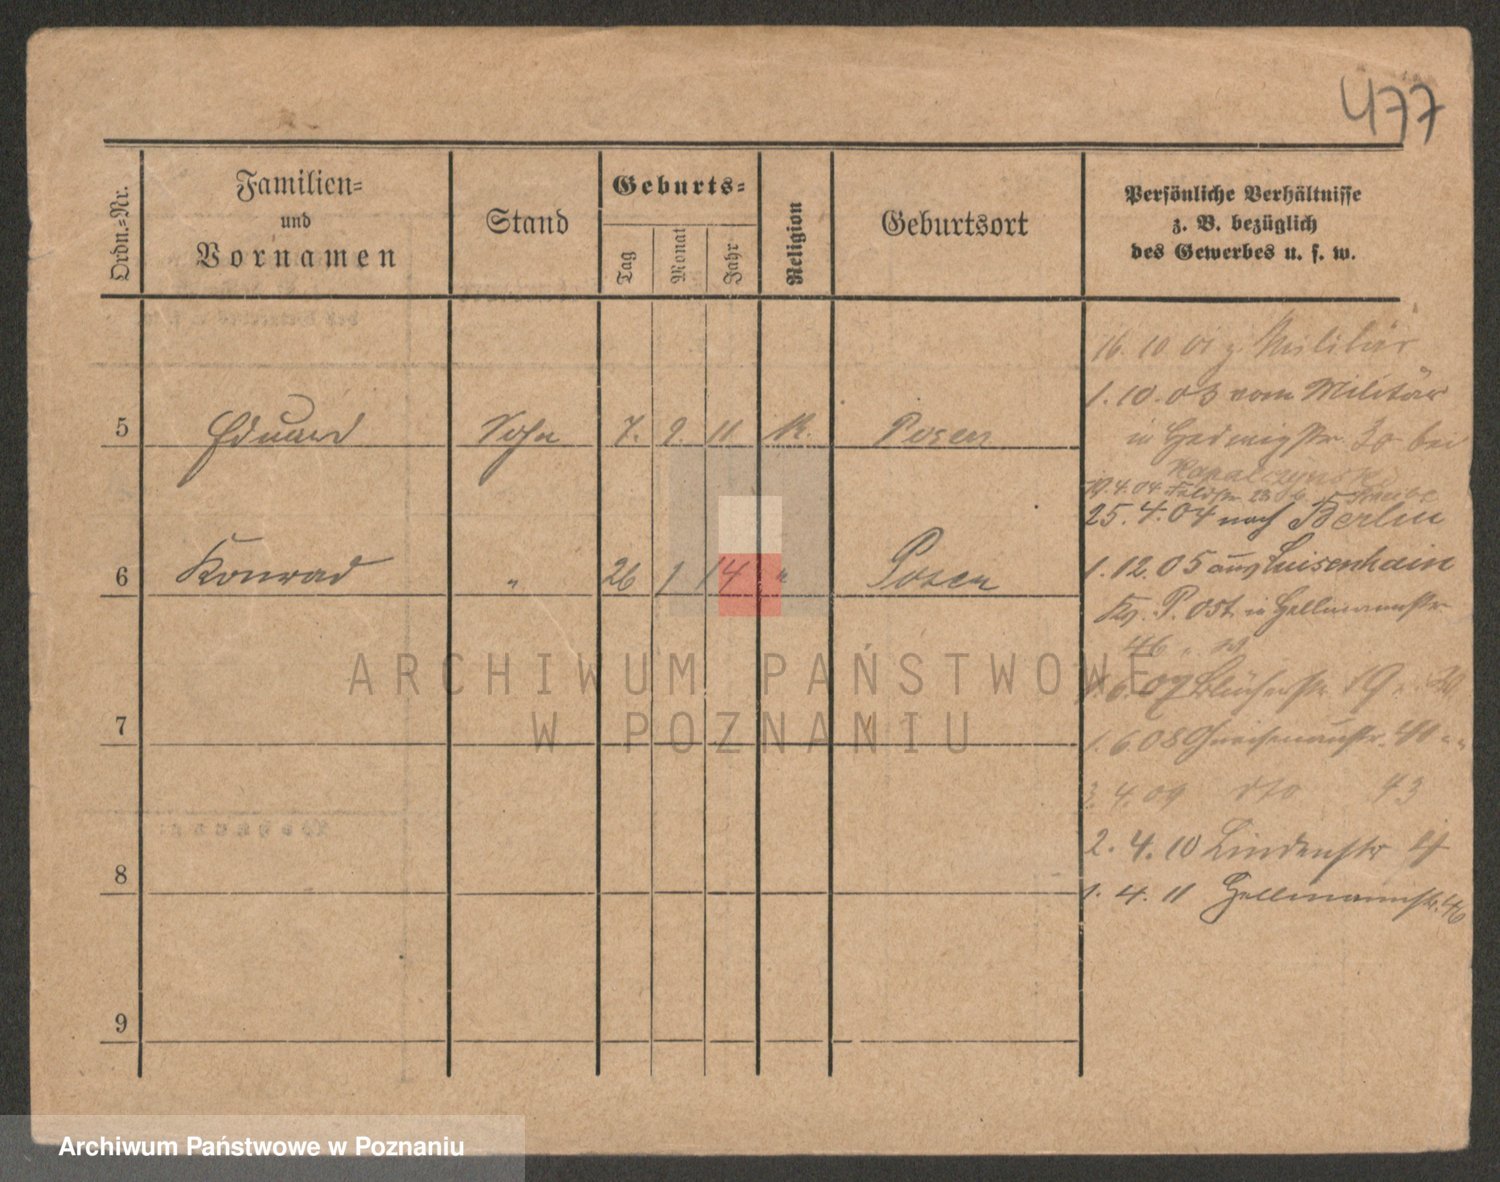 477
Ordn.-Nr.
Familien-
und
Vornamen
Stand
Geburts-
Tag
Monat
Jahr
Religion
Geburtsort
Persönliche Verhältnisse
z. B. bezüglich
des Gewerbes u. s. w.
16. 10 01 z. Militär
1. 10. 03 vom Militär
5 Eduard Sohn 7. 9. 11 K. Posen
in Hedwigstr. 30 bei
19.4.04 Feldstr.
25. 4. 04 nach Berlin
6 Konrad " 26 1 14 " Posen
1. 12. 05 aus Luisenhain
Kr. P. Ost. in Hellmannstr
46
ARCHIWUM PAŃSTWOWE
W POZNANIU
1. 6. 07 Blücherstr. 19
7
1. 6 08 Gneisenaustr.
3. 4. 09 dto 43
2. 4. 10 Lindenstr 4
8
1. 4. 11 Hellmannstr. 46
9
Archiwum Państwowe w Poznaniu